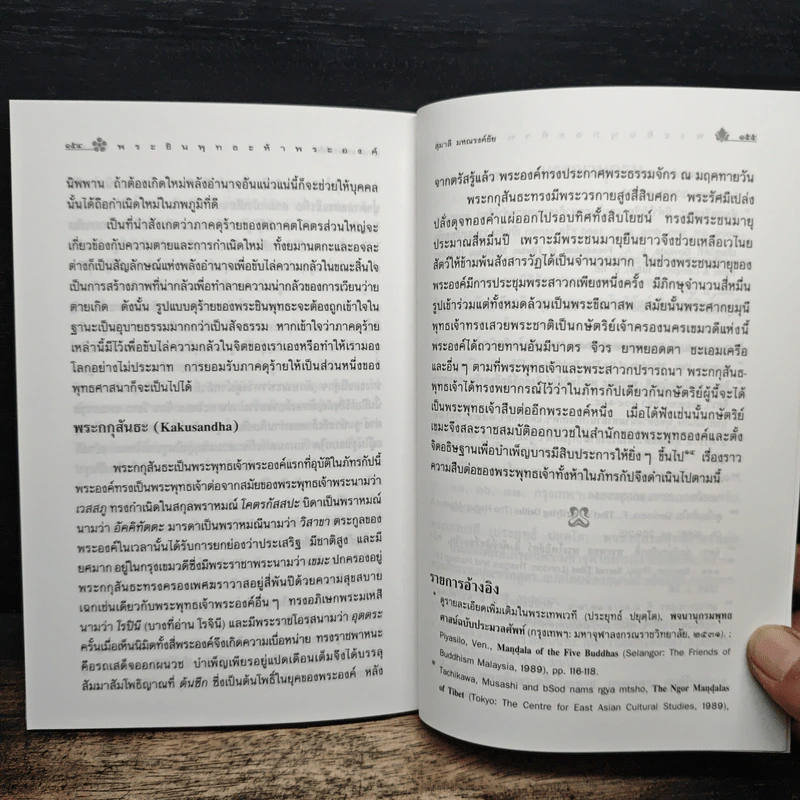 ๑๕๔ พระชินพุทธะห้าพระองค์
นิพพาน ถ้าต้องเกิดใหม่พลังอำนาจอันแน่วแน่นี้ก็จะช่วยให้บุคคล
นั้นได้ถือกำเนิดใหม่ในภพภูมิที่ดี
เป็นที่น่าสังเกตว่าภาคดุร้ายของตถาคตโคตรส่วนใหญ่จะ
เกี่ยวข้องกับความตายและการกำเนิดใหม่ ทั้งยมานตกะและอจละ
ต่างก็เป็นสัญลักษณ์แห่งพลังอำนาจเพื่อขับไล่ความกลัวในขณะสิ้นใจ
เป็นการสร้างภาพที่น่ากลัวเพื่อทำลายความน่ากลัวของการเวียนว่าย
ตายเกิด ดังนั้น รูปแบบดุร้ายของพระชินพุทธะจะต้องถูกเข้าใจใน
ฐานะเป็นอุบายธรรมมากกว่าเป็นสัจธรรม หากเข้าใจว่าภาคดุร้าย
เหล่านี้มีไว้เพื่อขับไล่ความกลัวในจิตของเราเองหรือทำให้เรามอง
โลกอย่างไม่ประมาท การยอมรับภาคดุร้ายให้เป็นส่วนหนึ่งของ
พุทธศาสนาก็จะเป็นไปได้
พระกกุสันธะ (Kakusandha)
พระกกุสันธะเป็นพระพุทธเจ้าพระองค์แรกที่อุบัติในภัทรกัปนี้
พระองค์ทรงเป็นพระพุทธเจ้าต่อจากสมัยของพระพุทธเจ้าพระนามว่า
เวสสภู ทรงกำเนิดในสกุลพราหมณ์ โคตรกัสสปะ บิดาเป็นพราหมณ์
นามว่า อัคคิทัตตะ มารดาเป็นพราหมณีนามว่า วิสาขา ตระกูลของ
พระองค์ในเวลานั้นได้รับการยกย่องว่าประเสริฐ มีชาติสูง และมี
ยศมาก อยู่ในกรุงเขมวดีซึ่งมีพระราชาพระนามว่า เขมะ ปกครองอยู่
พระกกุสันธะทรงครองเพศฆราวาสอยู่สี่พันปีด้วยความสุขสบาย
เฉกเช่นเดียวกับพระพุทธเจ้าพระองค์อื่นๆ ทรงอภิเษกพระมเหสี
นามว่า โรปินี (บางที่อ่าน โรจินี) และมีพระราชโอรสนามว่า อุตตระ
ครั้นเมื่อเห็นนิมิตทั้งสี่พระองค์จึงเกิดความเบื่อหน่าย ทรงราชพาหนะ
คือรถเสด็จออกผนวช บำเพ็ญเพียรอยู่แปดเดือนเต็มจึงได้บรรลุ
สัมมาสัมโพธิญาณที่ ต้นซึก ซึ่งเป็นต้นโพธิ์ในยุคของพระองค์ หลัง
สุมาลี มหณรงค์ชัย ๑๕๕
จากตรัสรู้แล้ว พระองค์ทรงประกาศพระธรรมจักร ณ มฤคทายวัน
พระกกุสันธะทรงมีพระวรกายสูงสี่สิบศอก พระรัศมีเปล่ง
ปลั่งดุจทองคำแผ่ออกไปรอบทิศทั้งสิบโยชน์ ทรงมีพระชนมายุ
ประมาณสี่หมื่นปี เพราะมีพระชนมายุยืนยาวจึงช่วยเหลือเวไนย
สัตว์ให้ข้ามพ้นสังสารวัฏได้เป็นจำนวนมาก ในช่วงพระชนมายุของ
พระองค์มีการประชุมพระสาวกเพียงหนึ่งครั้ง มีภิกษุจำนวนสี่หมื่น
รูปเข้าร่วมแต่ทั้งหมดล้วนเป็นพระขีณาสพ สมัยนั้นพระศากยมุนี
พุทธเจ้าทรงเสวยพระชาติเป็นกษัตริย์เจ้าครองนครเขมวดีแห่งนี้
พระองค์ได้ถวายทานอันมีบาตร จีวร ยาหยอดตา ชะเอมเครือ
และอื่นๆ ตามที่พระพุทธเจ้าและพระสาวกปรารถนา พระกกุสันธ-
พุทธเจ้าได้ทรงพยากรณ์ไว้ว่าในภัทรกัปเดียวกันกษัตริย์ผู้นี้จะได้
เป็นพระพุทธเจ้าสืบต่ออีกพระองค์หนึ่ง เมื่อได้ฟังเช่นนั้นกษัตริย์
เขมะจึงสละราชสมบัติออกบวชในสำนักของพระพุทธองค์และตั้ง
จิตอธิษฐานเพื่อบำเพ็ญบารมีสิบประการให้ยิ่งๆ ขึ้นไป เรื่องราว
ความสืบต่อของพระพุทธเจ้าทั้งห้าในภัทรกัปจึงดำเนินไปตามนี้
รายการอ้างอิง
ดูรายละเอียดเพิ่มเติมในพระเทพเวที (ประยุทธ์ ปยุตฺโต), พจนานุกรมพุทธ
ศาสน์ฉบับประมวลศัพท์ (กรุงเทพฯ: มหาจุฬาลงกรณราชวิทยาลัย, ๒๕๓๑). ;
Piyasilo, Ven., Maṇḍala of the Five Buddhas (Selangor: The Friends of
Buddhism Malaysia, 1989), pp. 116-118.
Tachikawa, Musashi and bSod nams rgya mtsho, The Ngor Maṇḍalas
of Tibet (Tokyo: The Centre for East Asian Cultural Studies, 1989),